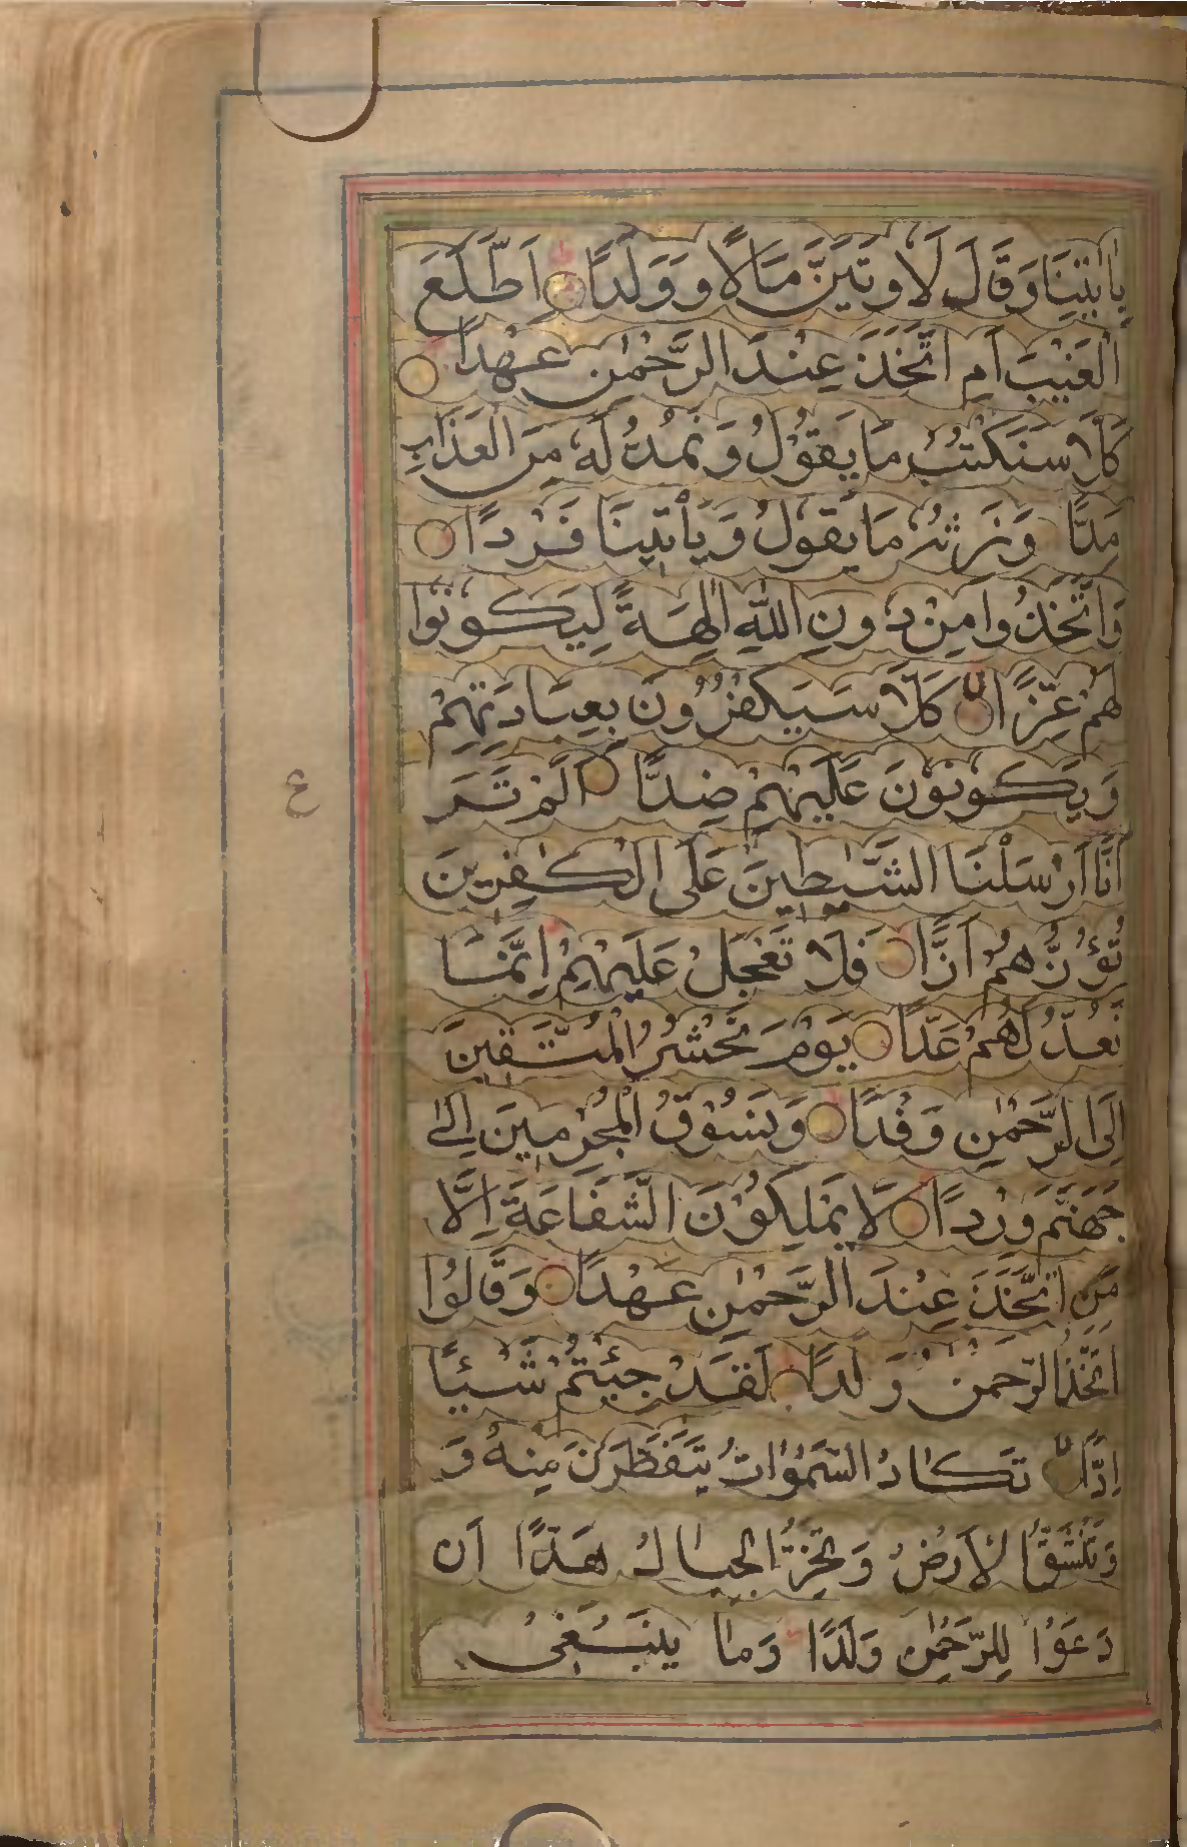 بِاٰيٰتِنَا وَقَالَ لَاُوتَيَنَّ مَالًا وَوَلَدًا اَطَّلَعَ
الْغَيْبَ اَمِ اتَّخَذَ عِنْدَ الرَّحْمٰنِ عَهْدًا
كَلَّا سَنَكْتُبُ مَا يَقُوْلُ وَنَمُدُّ لَهُ مِنَ الْعَذَابِ
مَدًّا وَنَرِثُهُ مَا يَقُوْلُ وَيَأْتِينَا فَرْدًا
وَاتَّخَذُوا مِنْ دُونِ اللّٰهِ اٰلِهَةً لِيَكُونُوا
لَهُمْ عِزًّا كَلَّا سَيَكْفُرُوْنَ بِعِبَادَتِهِمْ
وَيَكُونُوْنَ عَلَيْهِمْ ضِدًّا اَلَمْ تَرَ
اَنَّا اَرْسَلْنَا الشَّيٰطِينَ عَلَى الْكٰفِرِينَ
تَؤُزُّهُمْ اَزًّا فَلَا تَعْجَلْ عَلَيْهِمْ اِنَّمَا
نَعُدُّ لَهُمْ عَدًّا يَوْمَ نَحْشُرُ الْمُتَّقِينَ
اِلَى الرَّحْمٰنِ وَفْدًا وَنَسُوْقُ الْمُجْرِمِينَ اِلٰى
جَهَنَّمَ وِرْدًا لَا يَمْلِكُوْنَ الشَّفَاعَةَ اِلَّا
مَنِ اتَّخَذَ عِنْدَ الرَّحْمٰنِ عَهْدًا وَقَالُوا
اتَّخَذَ الرَّحْمٰنُ وَلَدًا لَقَدْ جِئْتُمْ شَيْئًا
اِدًّا تَكَادُ السَّمٰوَاتُ يَتَفَطَّرْنَ مِنْهُ وَ
وَتَنْشَقُّ الْاَرْضُ وَتَخِرُّ الْجِبَالُ هَدًّا اَنْ
دَعَوْا لِلرَّحْمٰنِ وَلَدًا وَمَا يَنْبَغِي
ع